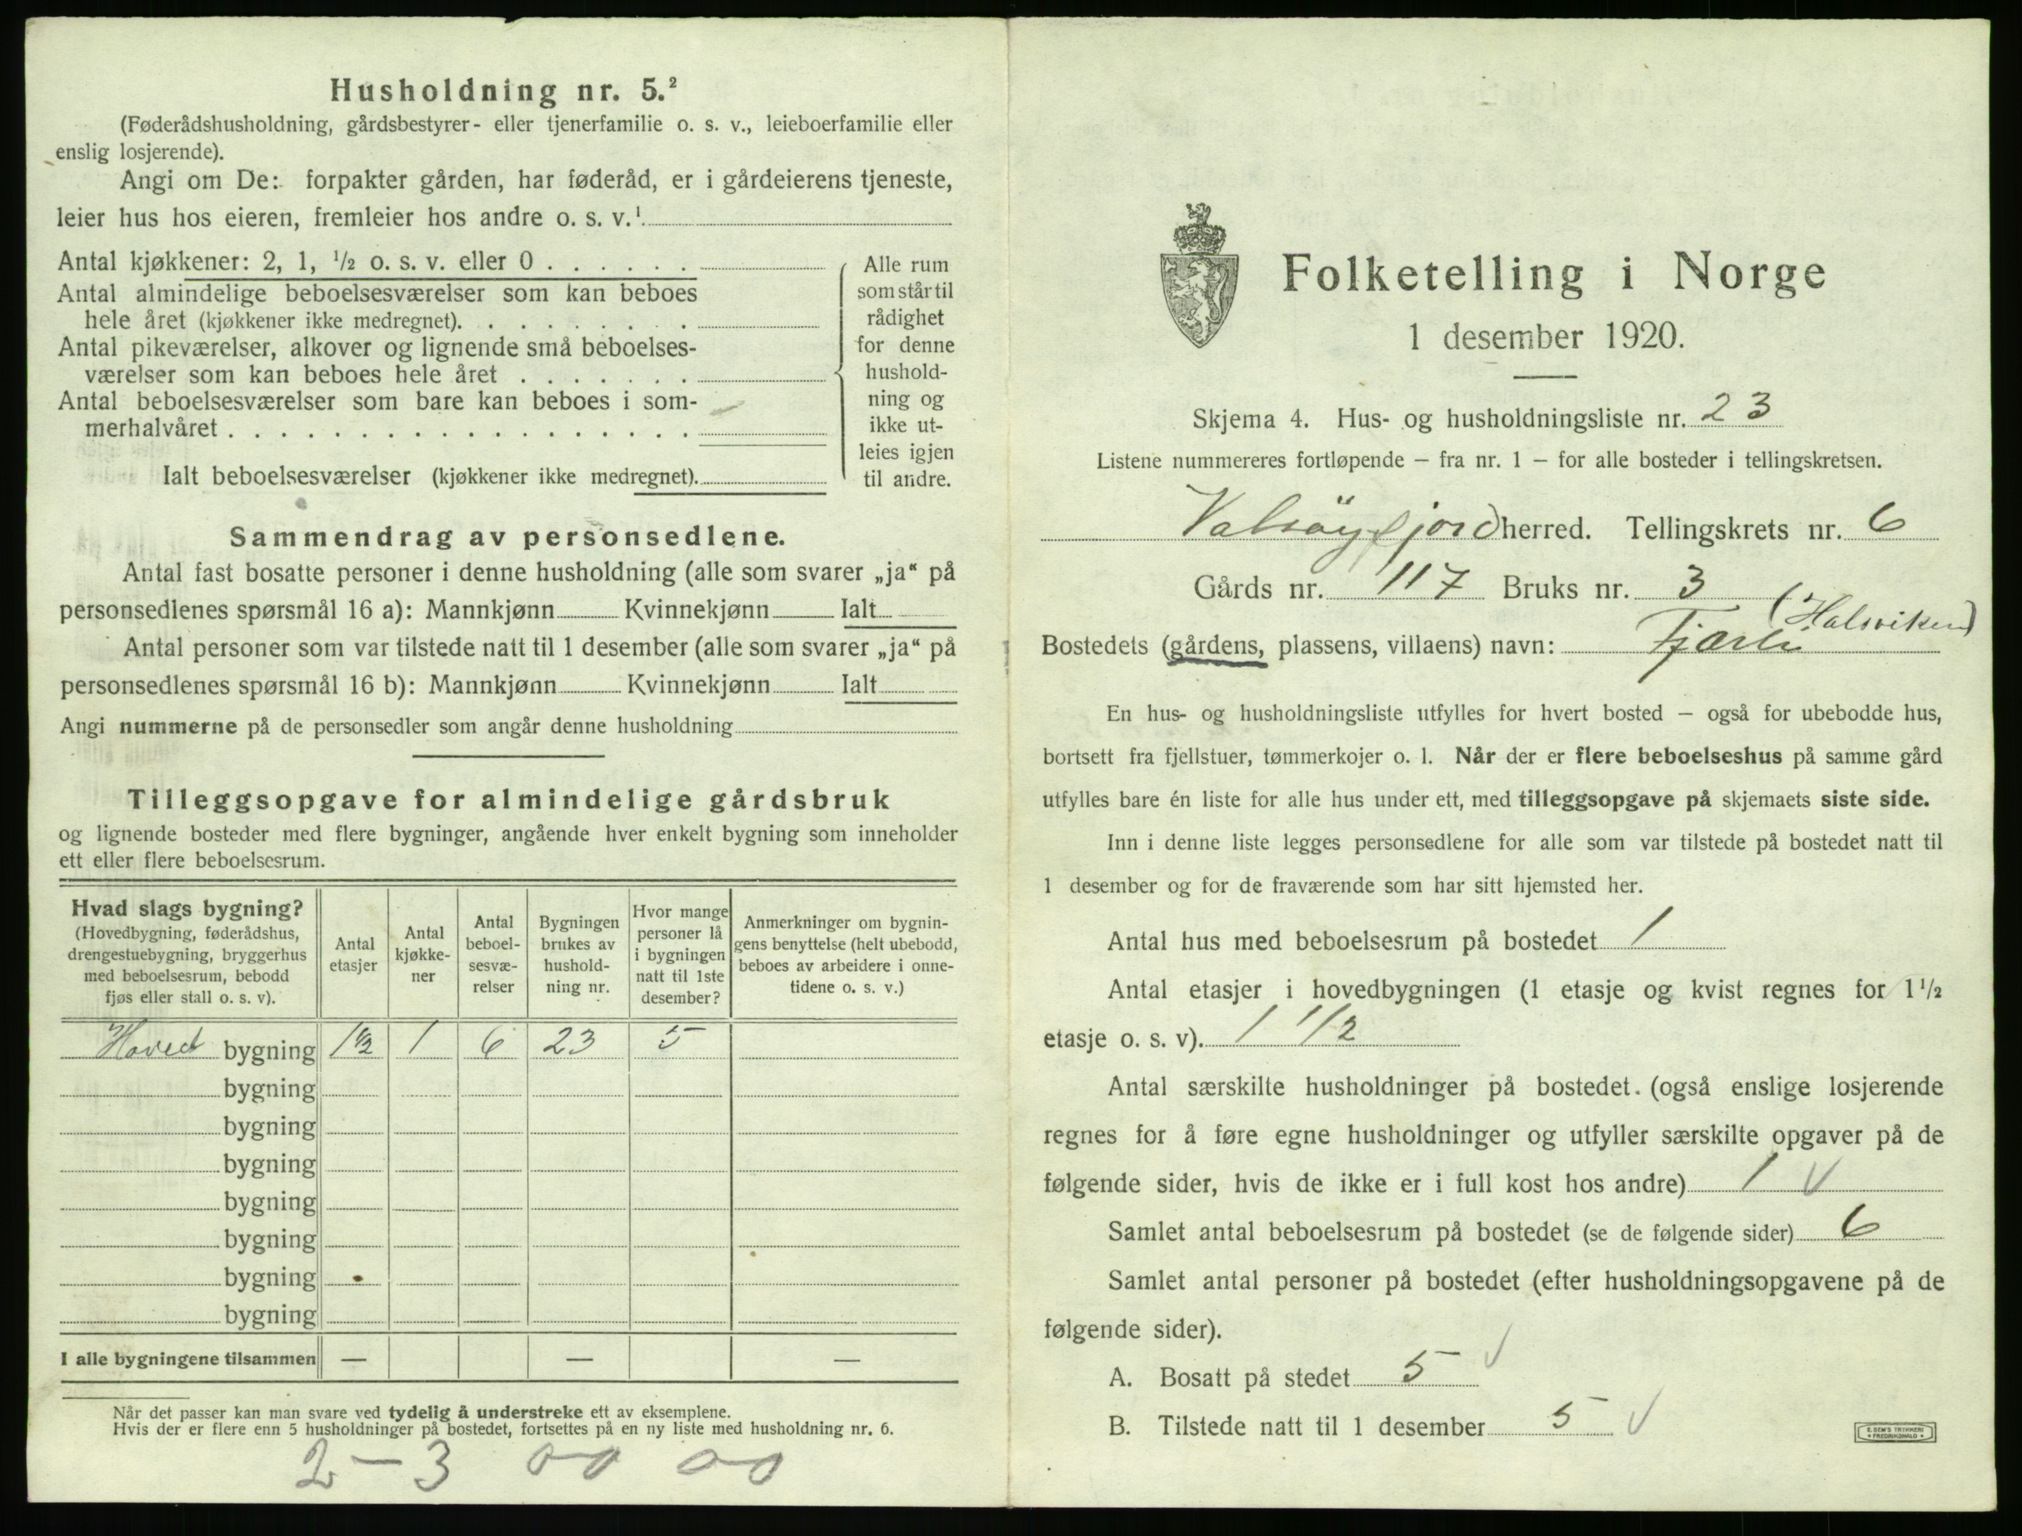 Husholdning nr. 5.²
(Føderådshusholdning, gårdsbestyrer- eller tjenerfamilie o. s. v., leieboerfamilie eller
enslig losjerende).
Angi om De: forpakter gården, har føderåd, er i gårdeierens tjeneste,
leier hus hos eieren, fremleier hos andre o. s. v.¹
Antal kjøkkener: 2, 1, ½ o. s. v. eller 0 . . . . . .
Antal almindelige beboelsesværelser som kan beboes
hele året (kjøkkener ikke medregnet). . . . . . . . .
Antal pikeværelser, alkover og lignende små beboelses-
værelser som kan beboes hele året . . . . . . .
Antal beboelsesværelser som bare kan beboes i som-
merhalvåret . . . . . . . . . . . . . . . . . .
Ialt beboelsesværelser (kjøkkener ikke medregnet).
Alle rum
som står til
rådighet
for denne
hushold-
ning og
ikke ut-
leies igjen
til andre.
Sammendrag av personsedlene.
Antal fast bosatte personer i denne husholdning (alle som svarer „ja“ på
personsedlenes spørsmål 16 a): Mannkjønn Kvinnekjønn Ialt
Antal personer som var tilstede natt til 1 desember (alle som svarer „ja“ på
personsedlenes spørsmål 16 b): Mannkjønn Kvinnekjønn Ialt
Angi nummerne på de personsedler som angår denne husholdning
Tilleggsopgave for almindelige gårdsbruk
og lignende bosteder med flere bygninger, angående hver enkelt bygning som inneholder
ett eller flere beboelsesrum.
Hvad slags bygning?
(Hovedbygning, føderådshus,
drengestuebygning, bryggerhus
med beboelsesrum, bebodd
fjøs eller stall o. s. v).
Antal
etasjer
Antal
kjøkke-
ner
Antal
beboel-
sesvæ-
relser
Bygningen
brukes av
hushold-
ning nr.
Hvor mange
personer lå
i bygningen
natt til 1ste
desember?
Anmerkninger om bygnin-
gens benyttelse (helt ubebodd,
beboes av arbeidere i onne-
tidene o. s. v.)
Hoved bygning 1½ 1 6 23 5
bygning
bygning
bygning
bygning
bygning
bygning
bygning
I alle bygningene tilsammen — — —
Når det passer kan man svare ved tydelig å understreke ett av eksemplene.
Hvis der er flere enn 5 husholdninger på bostedet, fortsettes på en ny liste med husholdning nr. 6.
2 - 3 0-0 0-0
Folketelling i Norge
1 desember 1920.
Skjema 4. Hus- og husholdningsliste nr. 23
Listene nummereres fortløpende – fra nr. 1 – for alle bosteder i tellingskretsen.
Valsöyfjord herred. Tellingskrets nr. 6
Gårds nr. 117 Bruks nr. 3
(Halsviken)
Bostedets (gårdens, plassens, villaens) navn: Fjærli
En hus- og husholdningsliste utfylles for hvert bosted – også for ubebodde hus,
bortsett fra fjellstuer, tømmerkojer o. l. Når der er flere beboelseshus på samme gård
utfylles bare én liste for alle hus under ett, med tilleggsopgave på skjemaets siste side.
Inn i denne liste legges personsedlene for alle som var tilstede på bostedet natt til
1 desember og for de fraværende som har sitt hjemsted her.
Antal hus med beboelsesrum på bostedet 1
Antal etasjer i hovedbygningen (1 etasje og kvist regnes for 1½
etasje o. s. v). 1 1/2
Antal særskilte husholdninger på bostedet. (også enslige losjerende
regnes for å føre egne husholdninger og utfyller særskilte opgaver på de
følgende sider, hvis de ikke er i full kost hos andre) 1 √
Samlet antal beboelsesrum på bostedet (se de følgende sider) 6
Samlet antal personer på bostedet (efter husholdningsopgavene på de
følgende sider).
A. Bosatt på stedet 5 √
B. Tilstede natt til 1 desember 5 √
E. SEM'S TRYKKERI
FREDRIKSHALD